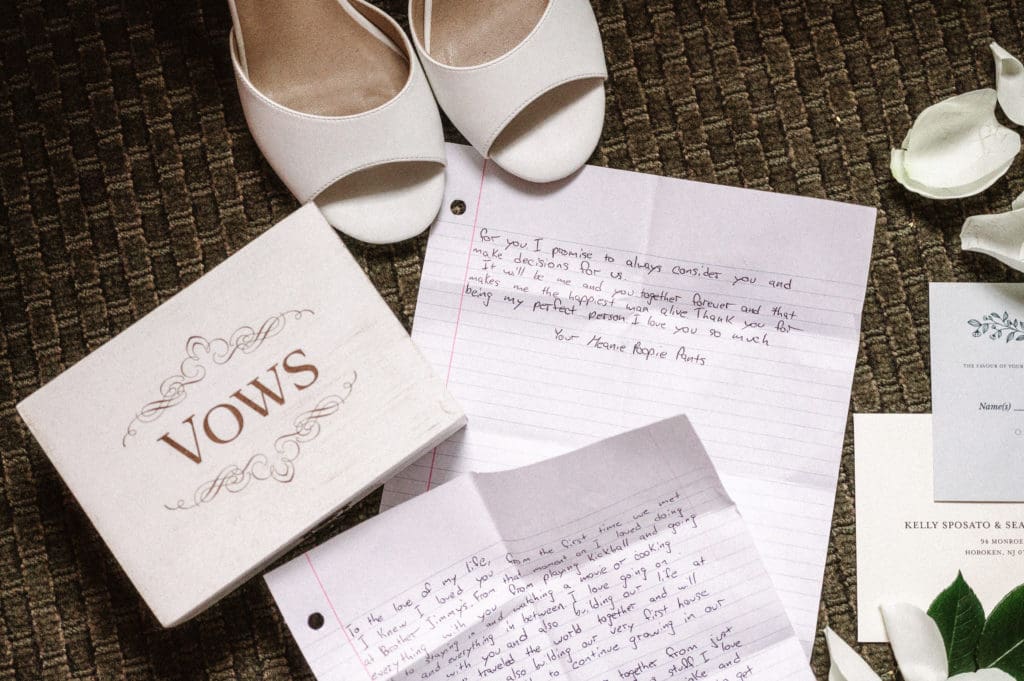 VOWS
for you I promise to always consider you and
make decisions for us.
It will be me and you together forever and that
makes me the happiest man alive Thank you for
being my perfect person I love you so much
Your Meanie Poopie Pants
To the love of my life,
I knew I loved you from the first time we met
at Brother Jimmys. From that moment on I loved doing
everything with you from playing kickball and going
to staying in and watching a movie or cooking
and everything in between. I love going on
with you and also building our life at
traveled the world together and will
also building our very first house
to continue growing in our
together from just
stuff I love
and
get
THE FAVOUR OF YOUR
Name(s)
KELLY SPOSATO & SEA
94 MONROE
HOBOKEN, NJ 07